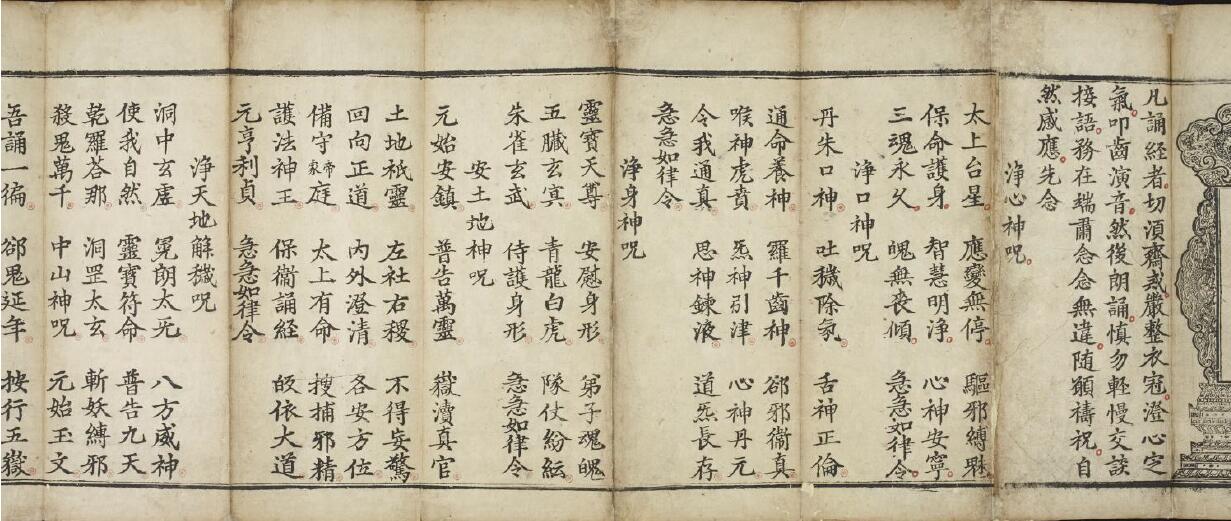 凡誦經者切須齋戒嚴整衣冠澄心定
氣叩齒演音然後朗誦慎勿輕慢交談
接語務在端肅念念無違随願禱祝自
然感應先念
淨心神呪
太上台星　應變無停　驅邪縛魅
保命護身　智慧明淨　心神安寧
三魂永久　魄無喪傾　急急如律令
淨口神呪
丹朱口神　吐穢除氛　舌神正倫
通命養神　羅千齒神　郤邪衛真
喉神虎賁　炁神引津　心神丹元
令我通真　思神鍊液　道炁長存
急急如律令
淨身神呪
靈寶天尊　安慰身形　弟子魂魄
五臟玄冥　青龍白虎　隊仗紛紜
朱雀玄武　侍護身形　急急如律令
安土地神呪
元始安鎮　普告萬靈　嶽瀆真官
土地祇靈　左社右稷　不得妄驚
回向正道　内外澄清　各安方位
備守家帝庭　太上有命　搜捕邪精
護法神王　保衛誦經　皈依大道
元亨利貞　急急如律令
淨天地解穢呪
洞中玄虛　晃朗太元　八方威神
使我自然　靈寶符命　普告九天
乾羅荅那　洞罡太玄　斬妖縛邪
殺鬼萬千　中山神呪　元始玉文
吾誦一徧　郤鬼延年　按行五嶽